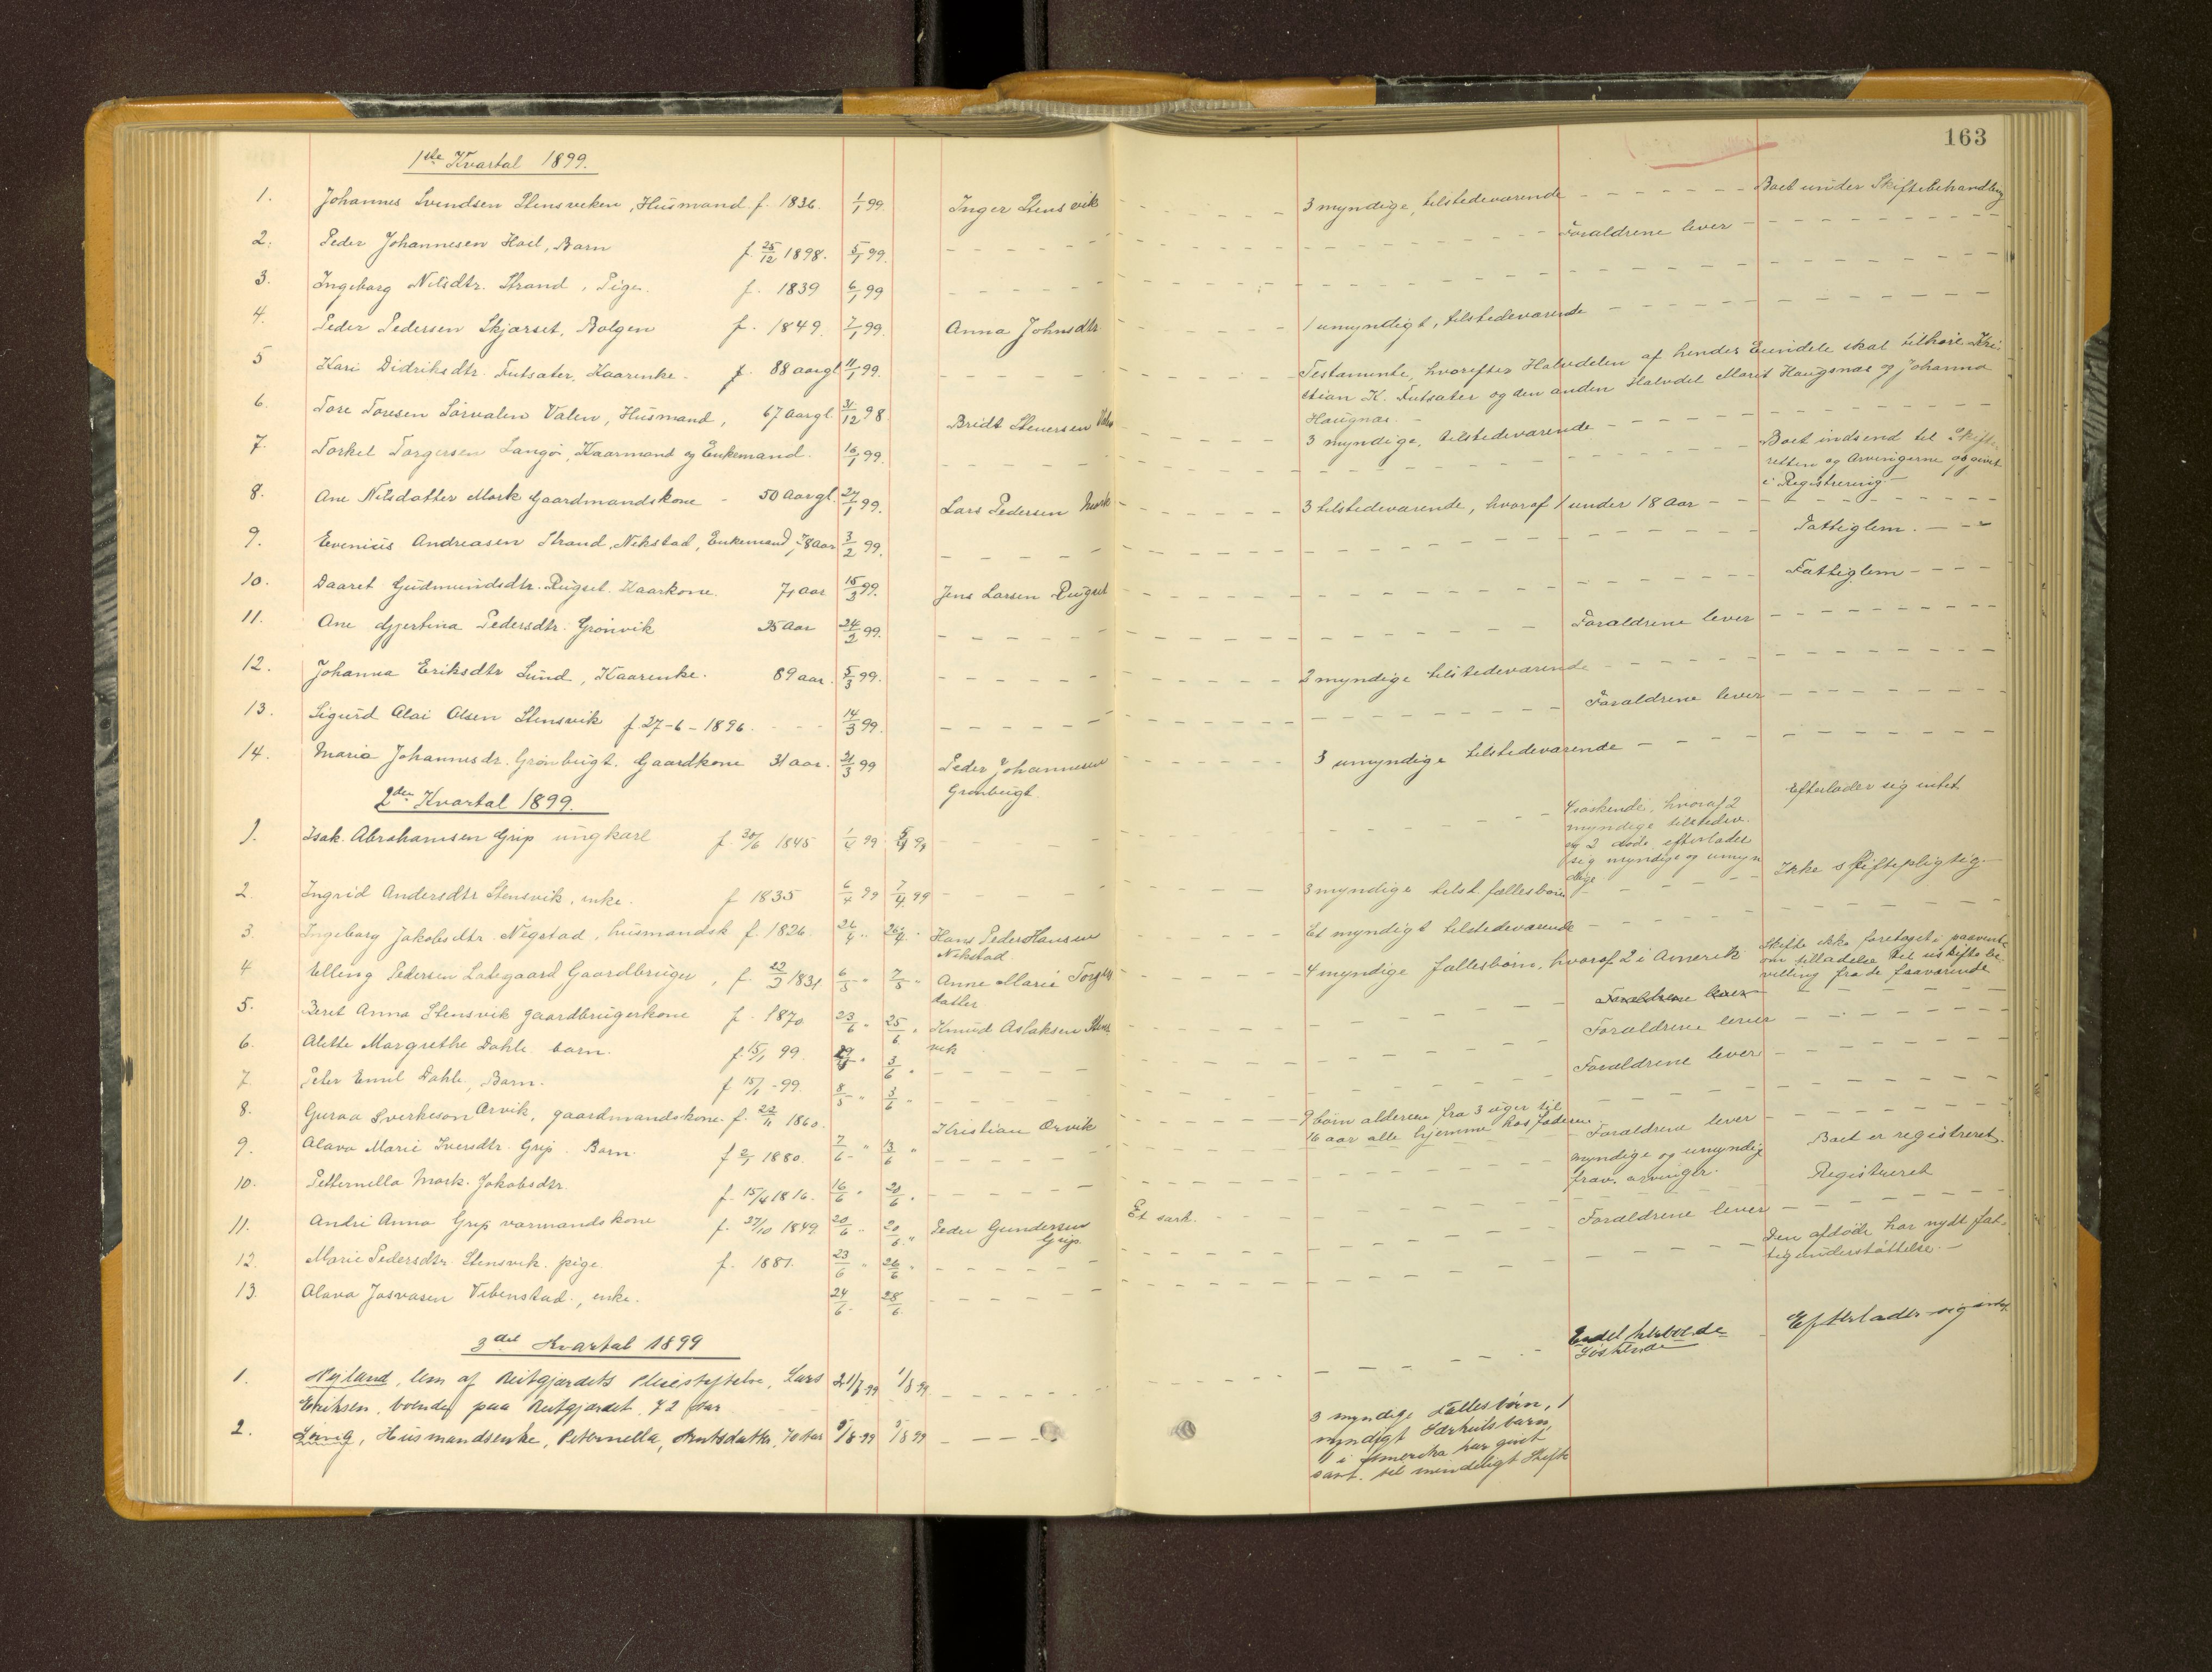 163
1ste Kvartal 1899.
1. Johannes Svendsen Stensveken, Husmand f. 1836. 1/1 99. Inger Stensvik 3 myndige, tilstedeværende Boet under Skiftebehandling
2. Peder Johannesen Hoel, Barn f. 25/12 1898. 5/1 99. Forældrene lever
3. Ingeborg Nilsdtr. Strand, Pige. f. 1839 6/1 99
4. Peder Pedersen Skjørset, Bolgen f. 1849. 7/1 99. Anna Johnsdtr 1 umyndigt, tilstedeværende
5 Kari Didriksdtr. Futsæter, Kaarenke. f. 88 aargl 11/1 99. Testamente, hvorefter Halvdelen af hendes Eiendele skal tilhøre Kri-
stian K. Futsæter og den anden Halvdel Marit Haugsnæs og Johanna
Haugnæs
6. Tore Toresen Sørvalen Valen, Husmand, 67 aargl. 31/12 98 Bridt Stenersen 3 myndige, tilstedeværende
7. Torkel Torgersen Langøi, Kaarmand og Enkemand. 16/1 99. Boet indsend til Skifte-
retten og Arvingerne opgivet
i Registrering
8. Ane Nilsdatter Mork Gaardmandskone - 50 Aargl. 27/1 99. Lars Pedersen Mork 3 tilstedeværende, hvoraf 1 under 18 Aar
9. Evenius Andreasen Strand, Nekstad, Enkemand, 78 aar 3/2 99. Fattiglem.
10. Daaret Gudmundsdtr. Rugset. Kaarkone. 71 aar 15/3 99. Jens Larsen Rugset Fattiglem
11. Ane Gjertina Pedersdtr. Grønvik 35 Aar 24/2 99. Forældrene lever
12. Johanna Eriksdtr Lund, Kaarenke. 89 aar. 5/3 99. 2 myndige tilstedeværende
13. Sigurd Olai Olsen Stensvik f. 27-6-1896. 14/3 99. Forældrene lever
14. Maria Johannesdr. Grønbugt. Gaardkone 31 aar. 21/3 99 Peder Johannesen
Grønbugt. 3 umyndige tilstedeværende
2den Kvartal 1899.
1. Isak Abrahamsen Grip ungkarl f. 30/6 1845 1/4 99 4 søskende, hvoraf 2
myndige tilstedev.
og 2 døde efterlader
sig myndige og umyn
dige Efterlader sig intet
2. Ingrid Andersdtr Stensvik, enke. f 1835 6/4 99 7/4 99 3 myndige tilst. fællesbørn Ikke skiftepligtig
3. Ingeborg Jakobsdtr. Negstad, husmandsk f. 1826 26/4 26/4 Hans Peder Hansen
Nekstad Et myndigt tilstedeværende
4 Elling Pedersen Langaard Gaardbruger, f. 22/3 1831 6/5 " 7/5 " Anne Marie Torgers
datter 4 myndige fællesbørn, hvoraf 2 i Amerik Skifte ikke foretaget i paavente
om tilladelse til uskiftebe-
villing fra de fraværende
Forældrene lever
5. Beret Anna Stensvik gaardbrugerkone f. 1870 23/6 " 25/6 " Knud Aslaksen Stens
vik Forældrene lever
6. Alette Margrethe Dahle barn. f. 15/1 99 3/6 " Forældrene lever
7. Peter Emil Dahle, Barn. f 15/1 - 99. 8/5 " 3/6 "
8. Guroa Sverkeson Ørvik, gaardmandskone f. 22/11 1860 Kristian Ørvik 9 børn alderen fra 3 uger til
16 aar alle hjemme hos faderen Forældrene lever
9. Olava Marie Iversdtr. Grip. Barn. f 2/1 1880. 7/6 " 13/6 " Boet er registreret.
10. Petternella Mork. Jakobsdtr f. 15/4 1816. 16/6 " 20/6 " myndige og umyndig
frav. arvinger. Registreret
11. Andri Anna Grip vormandskone f. 27/10 1849 20/6 " 20/6 " Peder Gundersen
Grip. Et særk.
12. Marie Pedersdtr. Stensvik. pige. f. 1881. 23/6 " 26/6 " Forældrene lever
13. Olava Josvasen Vebenstad., enke. 24/6 28/6 Den afdøde har nydt fat-
tigunderstøttelse.
3die Kvartal 1899
1. Hejland, lem af Reitgjærdets Pleiestiftelse, Lars 21/7 99 1/8 99
Eriksen, boende paa Reitgjærdet, 72 Aar Endel
Søskende Efterlader sig intet
2. Husmandsenke, Peternella, Arntsdatter, 70 Aar 9/8 99 9/8 99 3 myndige Fællesbørn, 1
myndigt Særkuldsbarn,
1 i Amerika har givet
sam. til mindeligt Skifte